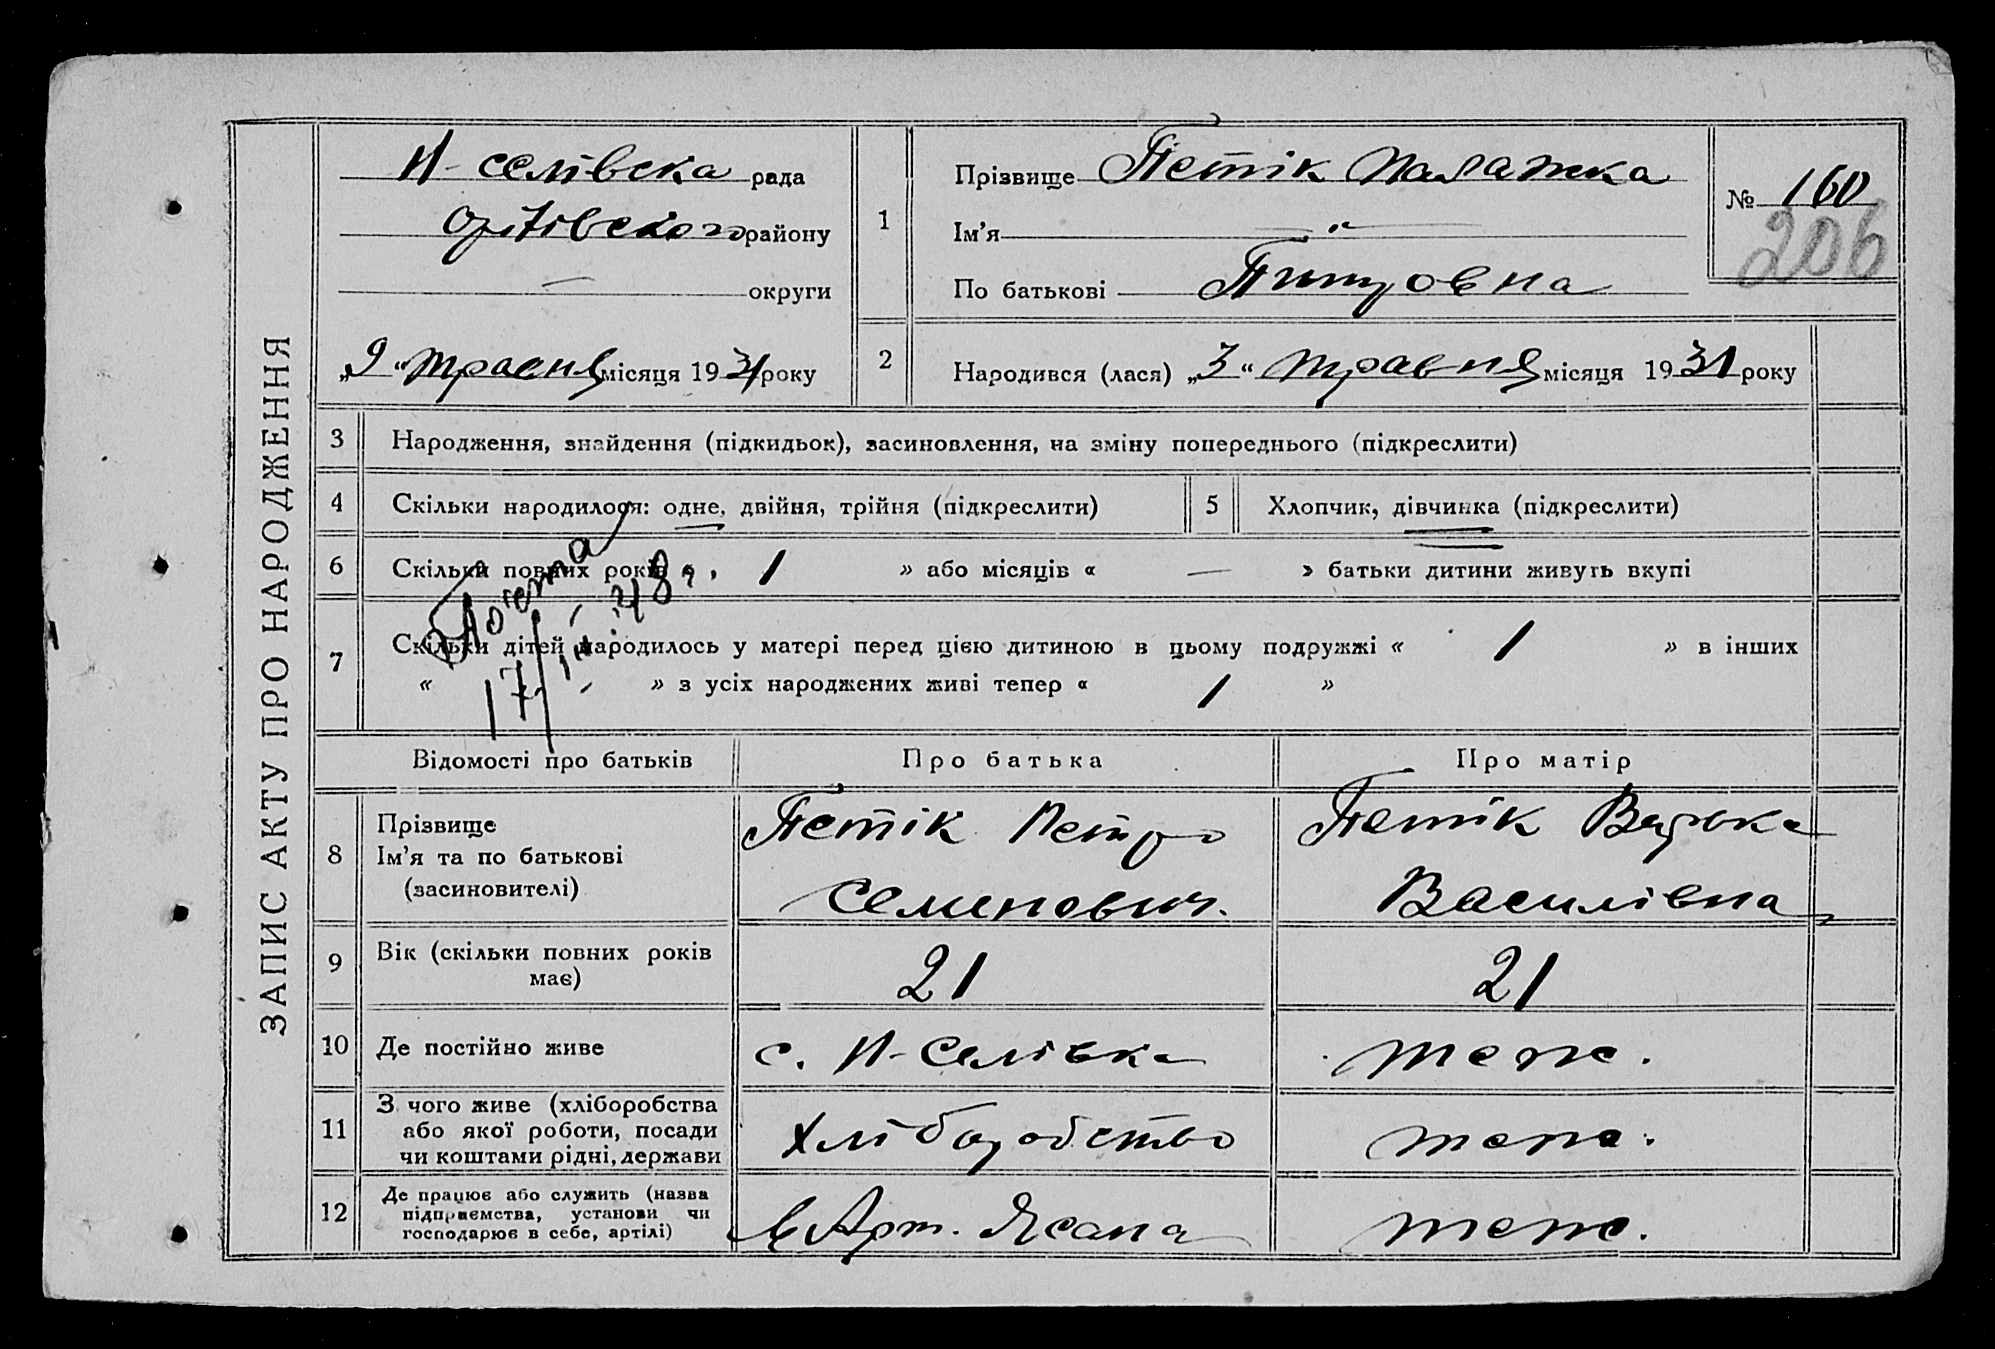 ЗАПИС АКТУ ПРО НАРОДЖЕННЯ
Н-селівска рада
району
— округи
„9“ травня місяця 1931 року
1
Прізвище Петік Палажка
Ім'я
По батькові Петровна
№ 160
206
2
Народився (лася) „3“ травня місяця 1931 року
3 Народження, знайдення (підкидьок), засиновлення, на зміну попереднього (підкреслити)
4 Скільки народилося: одне, двійня, трійня (підкреслити)
5 Хлопчик, дівчинка (підкреслити)
6 Скільки повних років « 1 » або місяців « — » батьки дитини живуть вкупі
7 Скільки дітей народилось у матері перед цією дитиною в цьому подружжі « 1 » в інших
« - » з усіх народжених живі тепер « 1 »
17/III-48 р.
Відомості про батьків
Про батька
Про матір
8 Прізвище
Ім'я та по батькові
(засиновителі)
Петік Петро
Семенович.
Петік
Василівна
9 Вік (скільки повних років
має)
21
21
10 Де постійно живе
с. Н-Селівка
теж.
11 З чого живе (хліборобства
або якої роботи, посади
чи коштами рідні, держави
хліборобство
теж.
12 Де працює або служить (назва
підприємства, установи чи
господарює в себе, артілі)
в Арт.
теж.